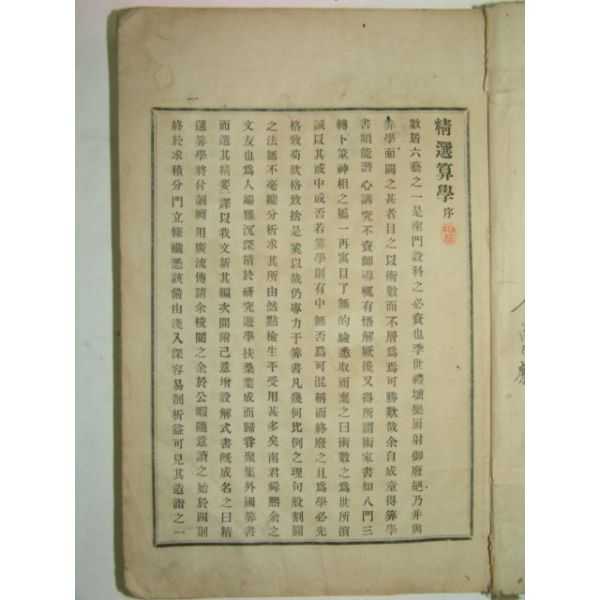 精選算學序
數居六藝之一是聖門設科之必資也季世禮壞樂崩射御廢絕乃并與
筭學而闕之甚者目之以術數而不屑爲焉可勝歎哉余自成童得筭學
書頗能潛心講究不資師導輒有悟解厥後又得所謂術家書如八門三
轉卜筮神相之屬一再寓目了無的驗悉取而棄之曰術數之爲世所濱
誠以其或中或否若筭學則有中無否爲可混稱而終廢之且爲學必先
格致苟欲格致捨是奚以哉仍專力于筭書凡幾何比例之理句股割圜
之法無不毫縷分析求其所由然點檢生平受用甚多矣南君舜熙余之
文友也爲人端雅沉深精於硏究遊學扶桑業成而歸甞聚集外國筭書
而選其精要譯以我文新其編次間附己意增設解式書旣成名之曰精
選筭學將付剞劂用廣流傳請余校閱之余於公暇隨意讀之始於四則
終於求積分門立條纖悉該備由淺入深容易剖析益可見其造詣之一
一